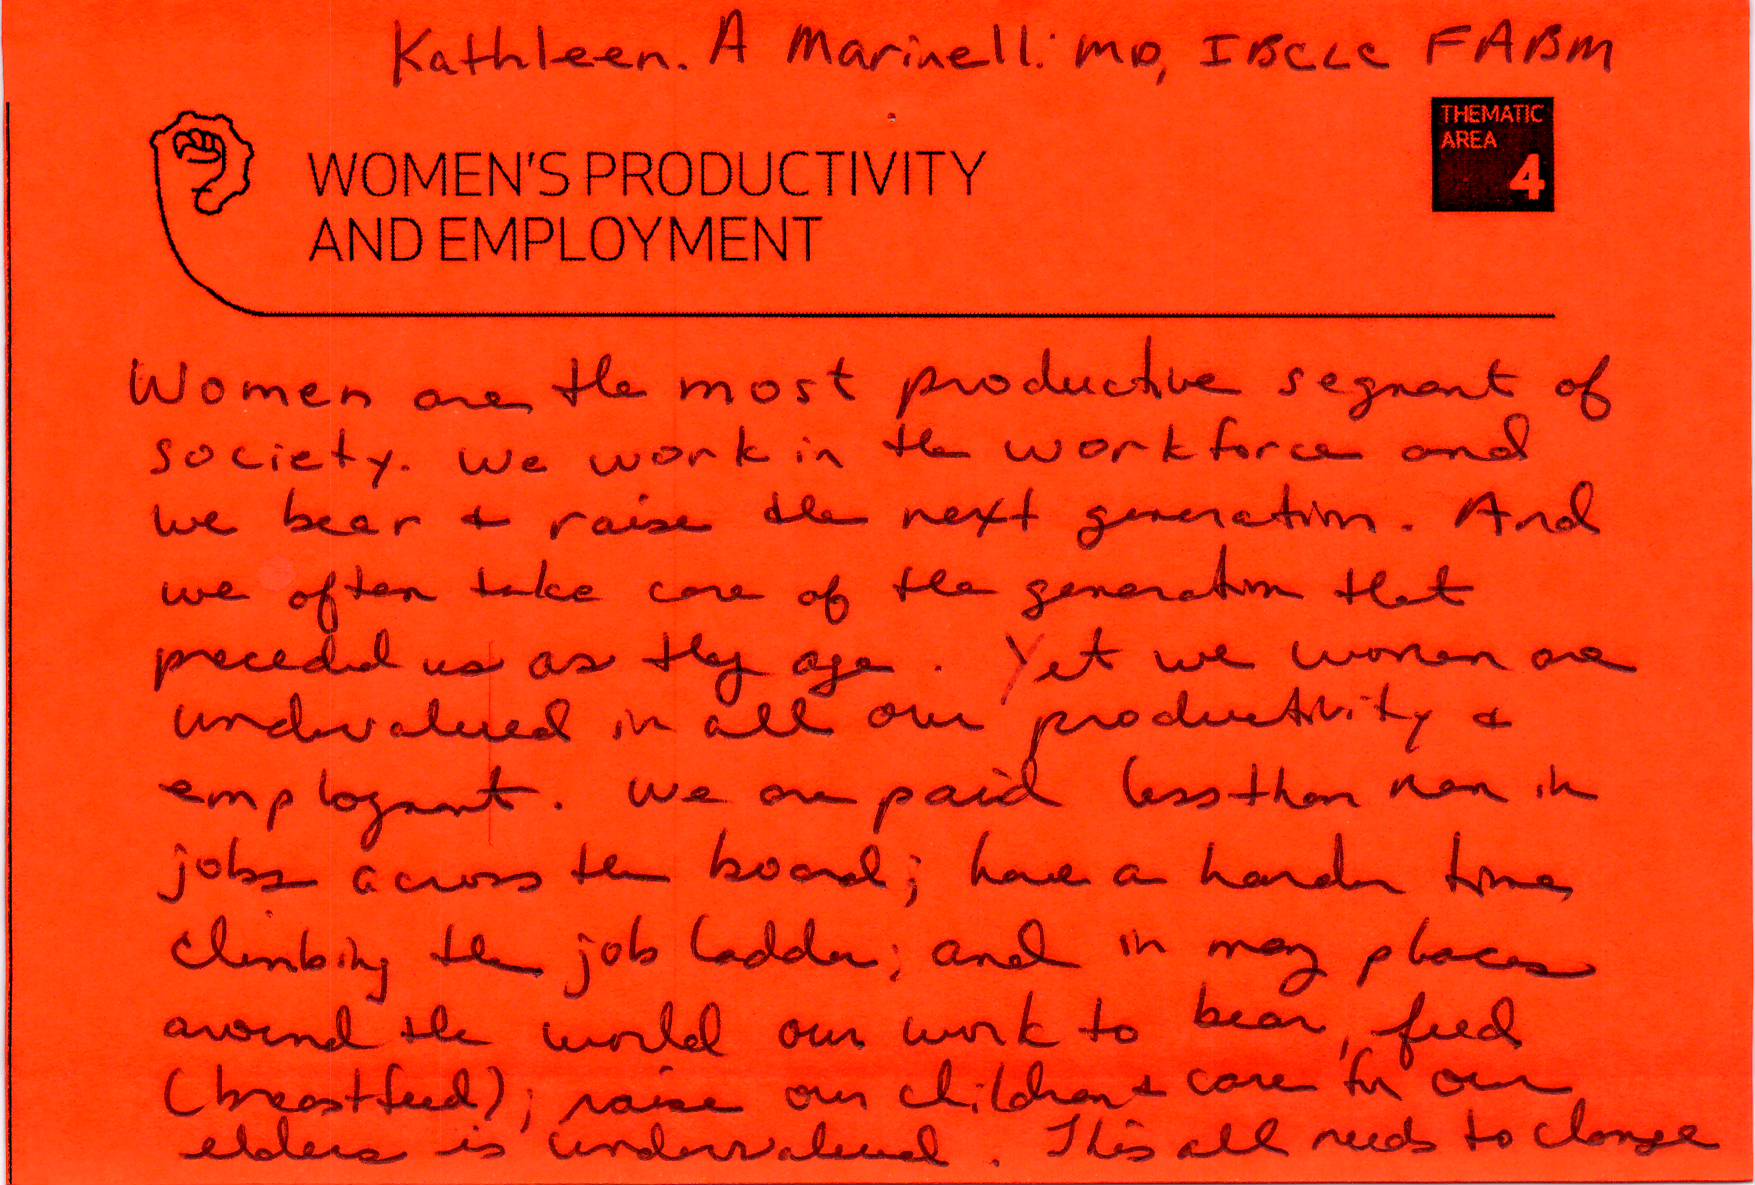 Kathleen. A Marinelli MD, IBCLC FABM
THEMATIC
AREA
4
WOMEN'S PRODUCTIVITY
AND EMPLOYMENT
Women are the most productive segment of
society. We work in the workforce and
we bear + raise the next generation. And
we often take care of the generation that
preceded us as they age. Yet we women are
undervalued in all our productivity +
employment. We are paid less than men in
jobs across the board; have a harder time
climbing the job ladder; and in many places
around the world our work to bear, feed
(breastfeed); raise our children + care for our
elders is undervalued. This all needs to change